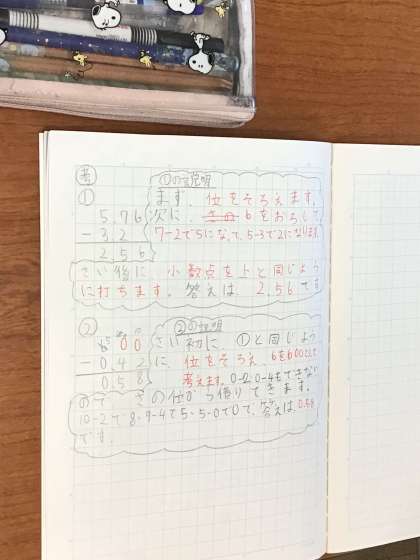 考
① ①の説明
5.76
- 3.2
2.56
まず、位をそろえます。
次に、6をおろして、
7-2で5になって、5-3で2になります。
さい後に、小数点を上と同じよう
に打ちます。答えは 2.56です
② ②の説明
00
- 0.42
0.58
さい初に、①と同じよう
に、位をそろえ、
考えます。0-2、0-4もできない
ので、
の位から借りてきます。
10-2で8、9-4で5、5-5で0で、答えは、0.58
です。